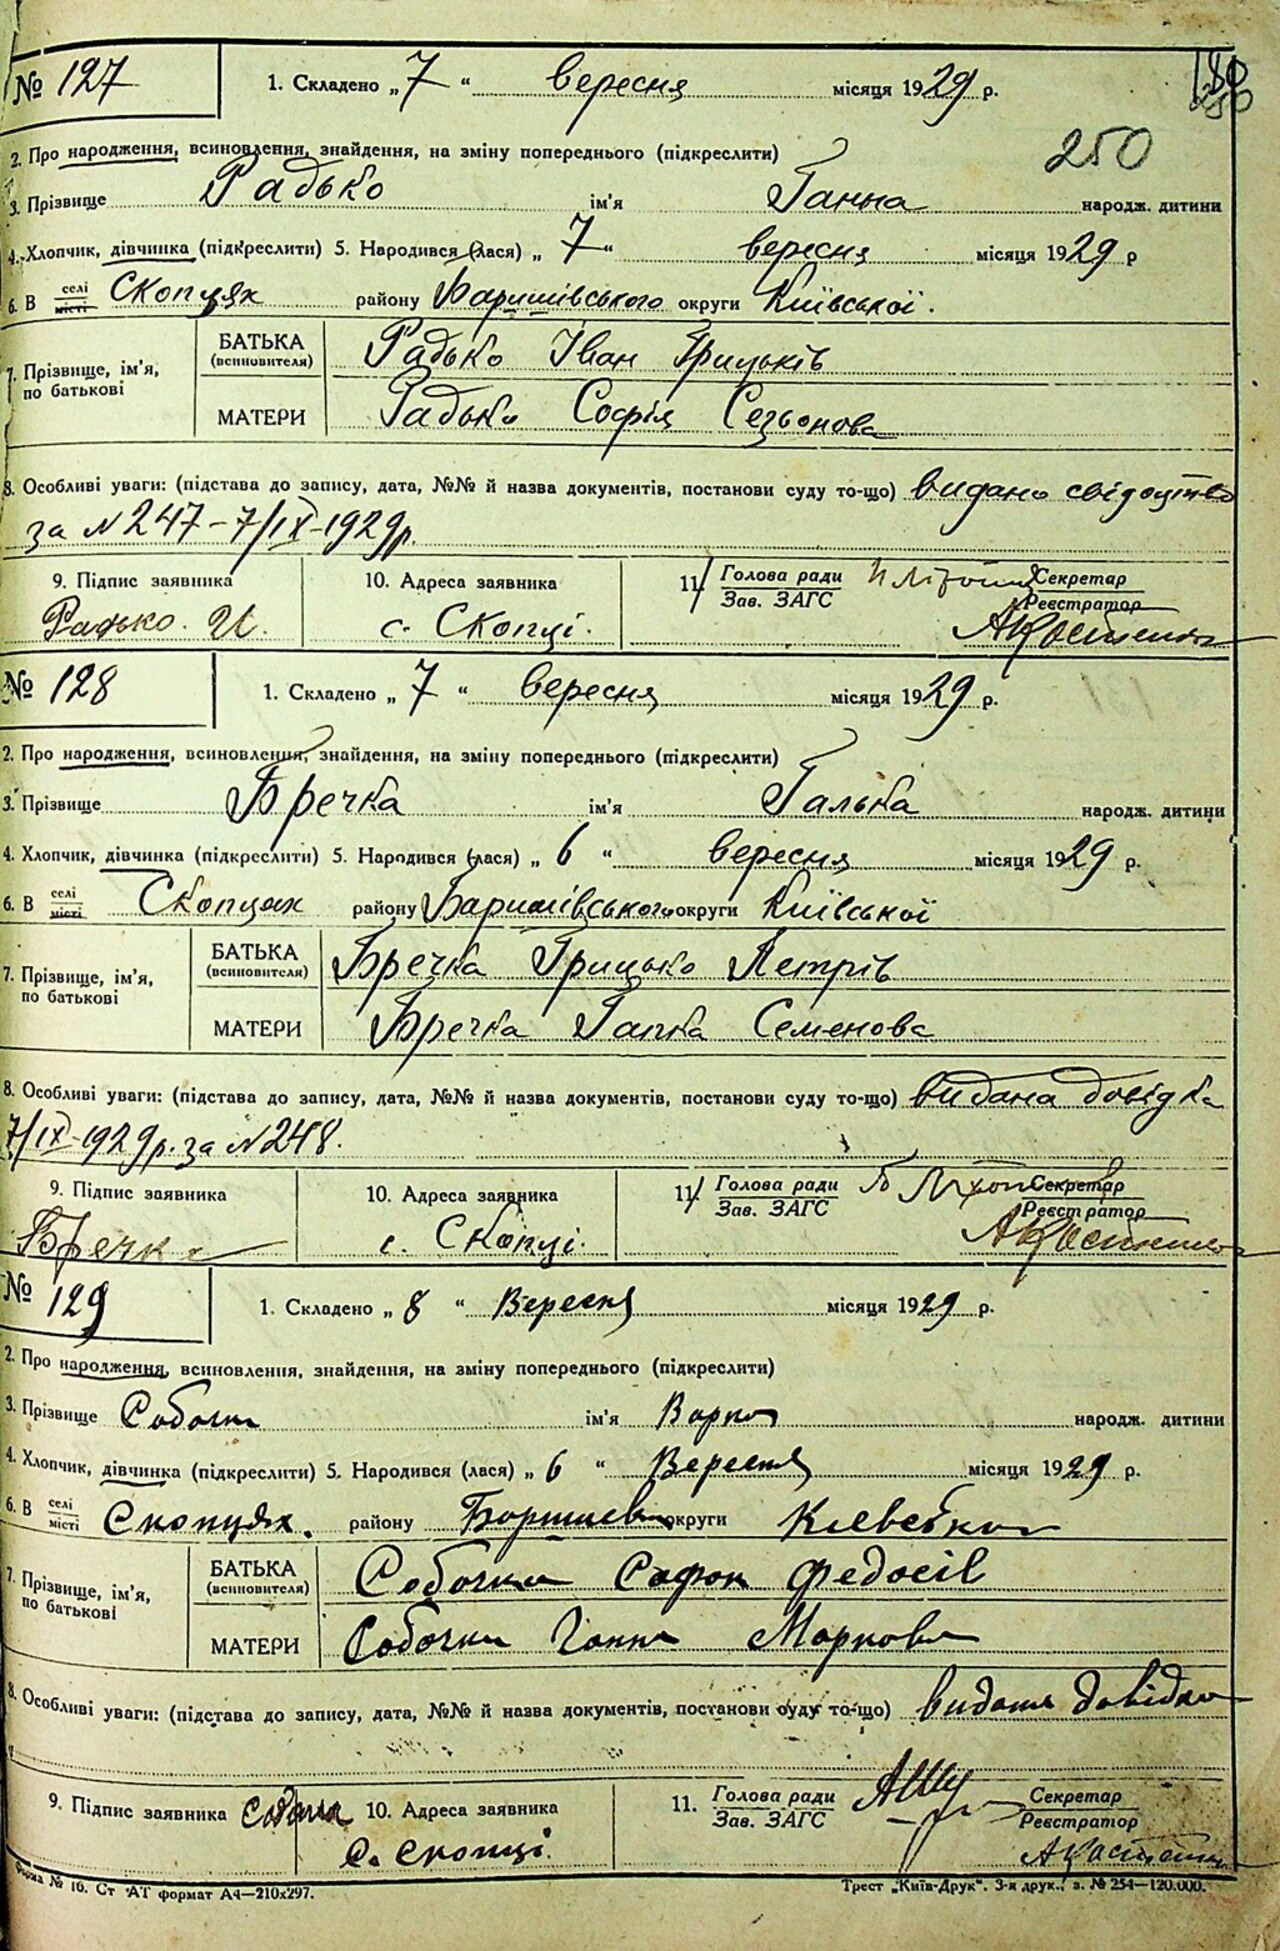 № 127 1. Складено „7“ вересня місяця 1929 р.
250
2. Про народження, всиновлення, знайдення, на зміну попереднього (підкреслити)
3. Прізвище Радько ім'я Ганна народж. дитини
4. Хлопчик, дівчинка (підкреслити) 5. Народився (лася) „7“ вересня місяця 1929 р
6. В селі місті Скопцях району Баришівського округи Київської.
7. Прізвище, ім'я, по батькові
БАТЬКА (всиновителя) Радько Іван Грицьків
МАТЕРИ Радько Софія
8. Особливі уваги: (підстава до запису, дата, №№ й назва документів, постанови суду то-що) видано свідоцтво
за N 247 – 7/IX–1929р.
9. Підпис заявника 10. Адреса заявника 11. Голова ради Секретар
Зав. ЗАГС Реєстратор
Радько. И. с. Скопці.
№ 128 1. Складено „7“ вересня місяця 1929 р.
2. Про народження, всиновлення, знайдення, на зміну попереднього (підкреслити)
3. Прізвище Бречка ім'я Галька народж. дитини
4. Хлопчик, дівчинка (підкреслити) 5. Народився (лася) „6“ вересня місяця 1929 р.
6. В селі місті Скопцях району Баришівського округи Київської
7. Прізвище, ім'я, по батькові
БАТЬКА (всиновителя) Бречка Грицько Петрів
МАТЕРИ Бречка Гапка Семенова
8. Особливі уваги: (підстава до запису, дата, №№ й назва документів, постанови суду то-що) видана довідка
7/IX–1929р. за N 248.
9. Підпис заявника 10. Адреса заявника 11. Голова ради Секретар
Зав. ЗАГС Реєстратор
Бречка с. Скопці.
№ 129 1. Складено „8“ Вересня місяця 1929 р.
2. Про народження, всиновлення, знайдення, на зміну попереднього (підкреслити)
3. Прізвище Собочка ім'я Варка народж. дитини
4. Хлопчик, дівчинка (підкреслити) 5. Народився (лася) „6“ Вересня місяця 1929 р.
6. В селі місті Скопцях. району округи
7. Прізвище, ім'я, по батькові
БАТЬКА (всиновителя) Собочка Сафон Федосів
МАТЕРИ Собочка Ганна Маркова
8. Особливі уваги: (підстава до запису, дата, №№ й назва документів, постанови суду то-що) видана довідка
9. Підпис заявника 10. Адреса заявника 11. Голова ради Секретар
Зав. ЗАГС Реєстратор
с. Скопці.
Форма № 16. Ст АТ формат А4—210х297. Трест „Київ-Друк“. 3-я друк., з. № 254—120.000.